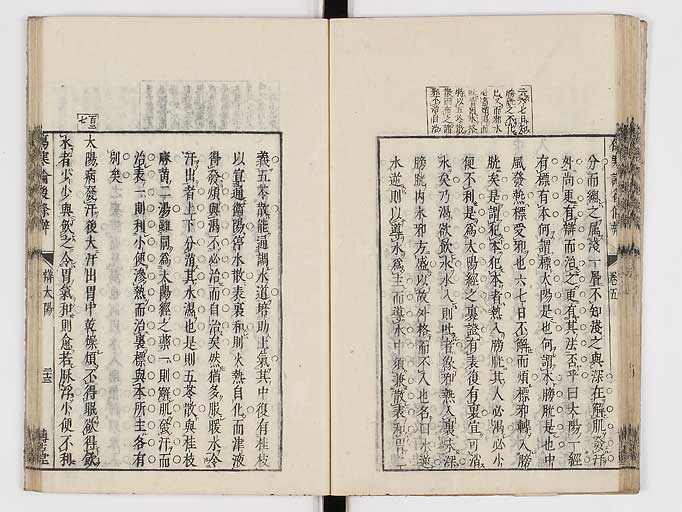 分而總之屬淺一層不知淺之與深在解肌發汗
外尚更有辯而治之更有其法否乎曰太陽一經
有標有本何謂標太陽是也何謂本膀胱是也中
風發熱標受邪也六七日不解而煩標邪轉入膀
胱矣是謂犯本犯本者熱入膀胱其人必渴必小
便不利是爲太陽經之裏證有表復有裏宜可消
水矣乃渴欲飲水水入則吐者緣邪熱入裏未深
膀胱內水邪方盛以故外格而不入也名曰水逆
水逆則以導水爲主而導水中須兼散表和胃二
義五苓散能通調水道培助土氣其中復有桂枝
以宣通衞陽停水散表裏和則火熱自化而津液
得發煩與渴不必治而自治矣然猶多服暖水令
汗出者上下分消其水濕也是則五苓散與桂枝
麻黃二湯雖同爲太陽經之藥一則解肌發汗而
治表一則利小便滲熱而治裏標與本所主各有
別矣
百二七
太陽病發汗後大汗出胃中乾燥煩不得眠欲得飲
水者少少與飲之令胃氣和則愈若脉浮小便不利
傷寒論後條辨
辯太陽
二十三
卷五